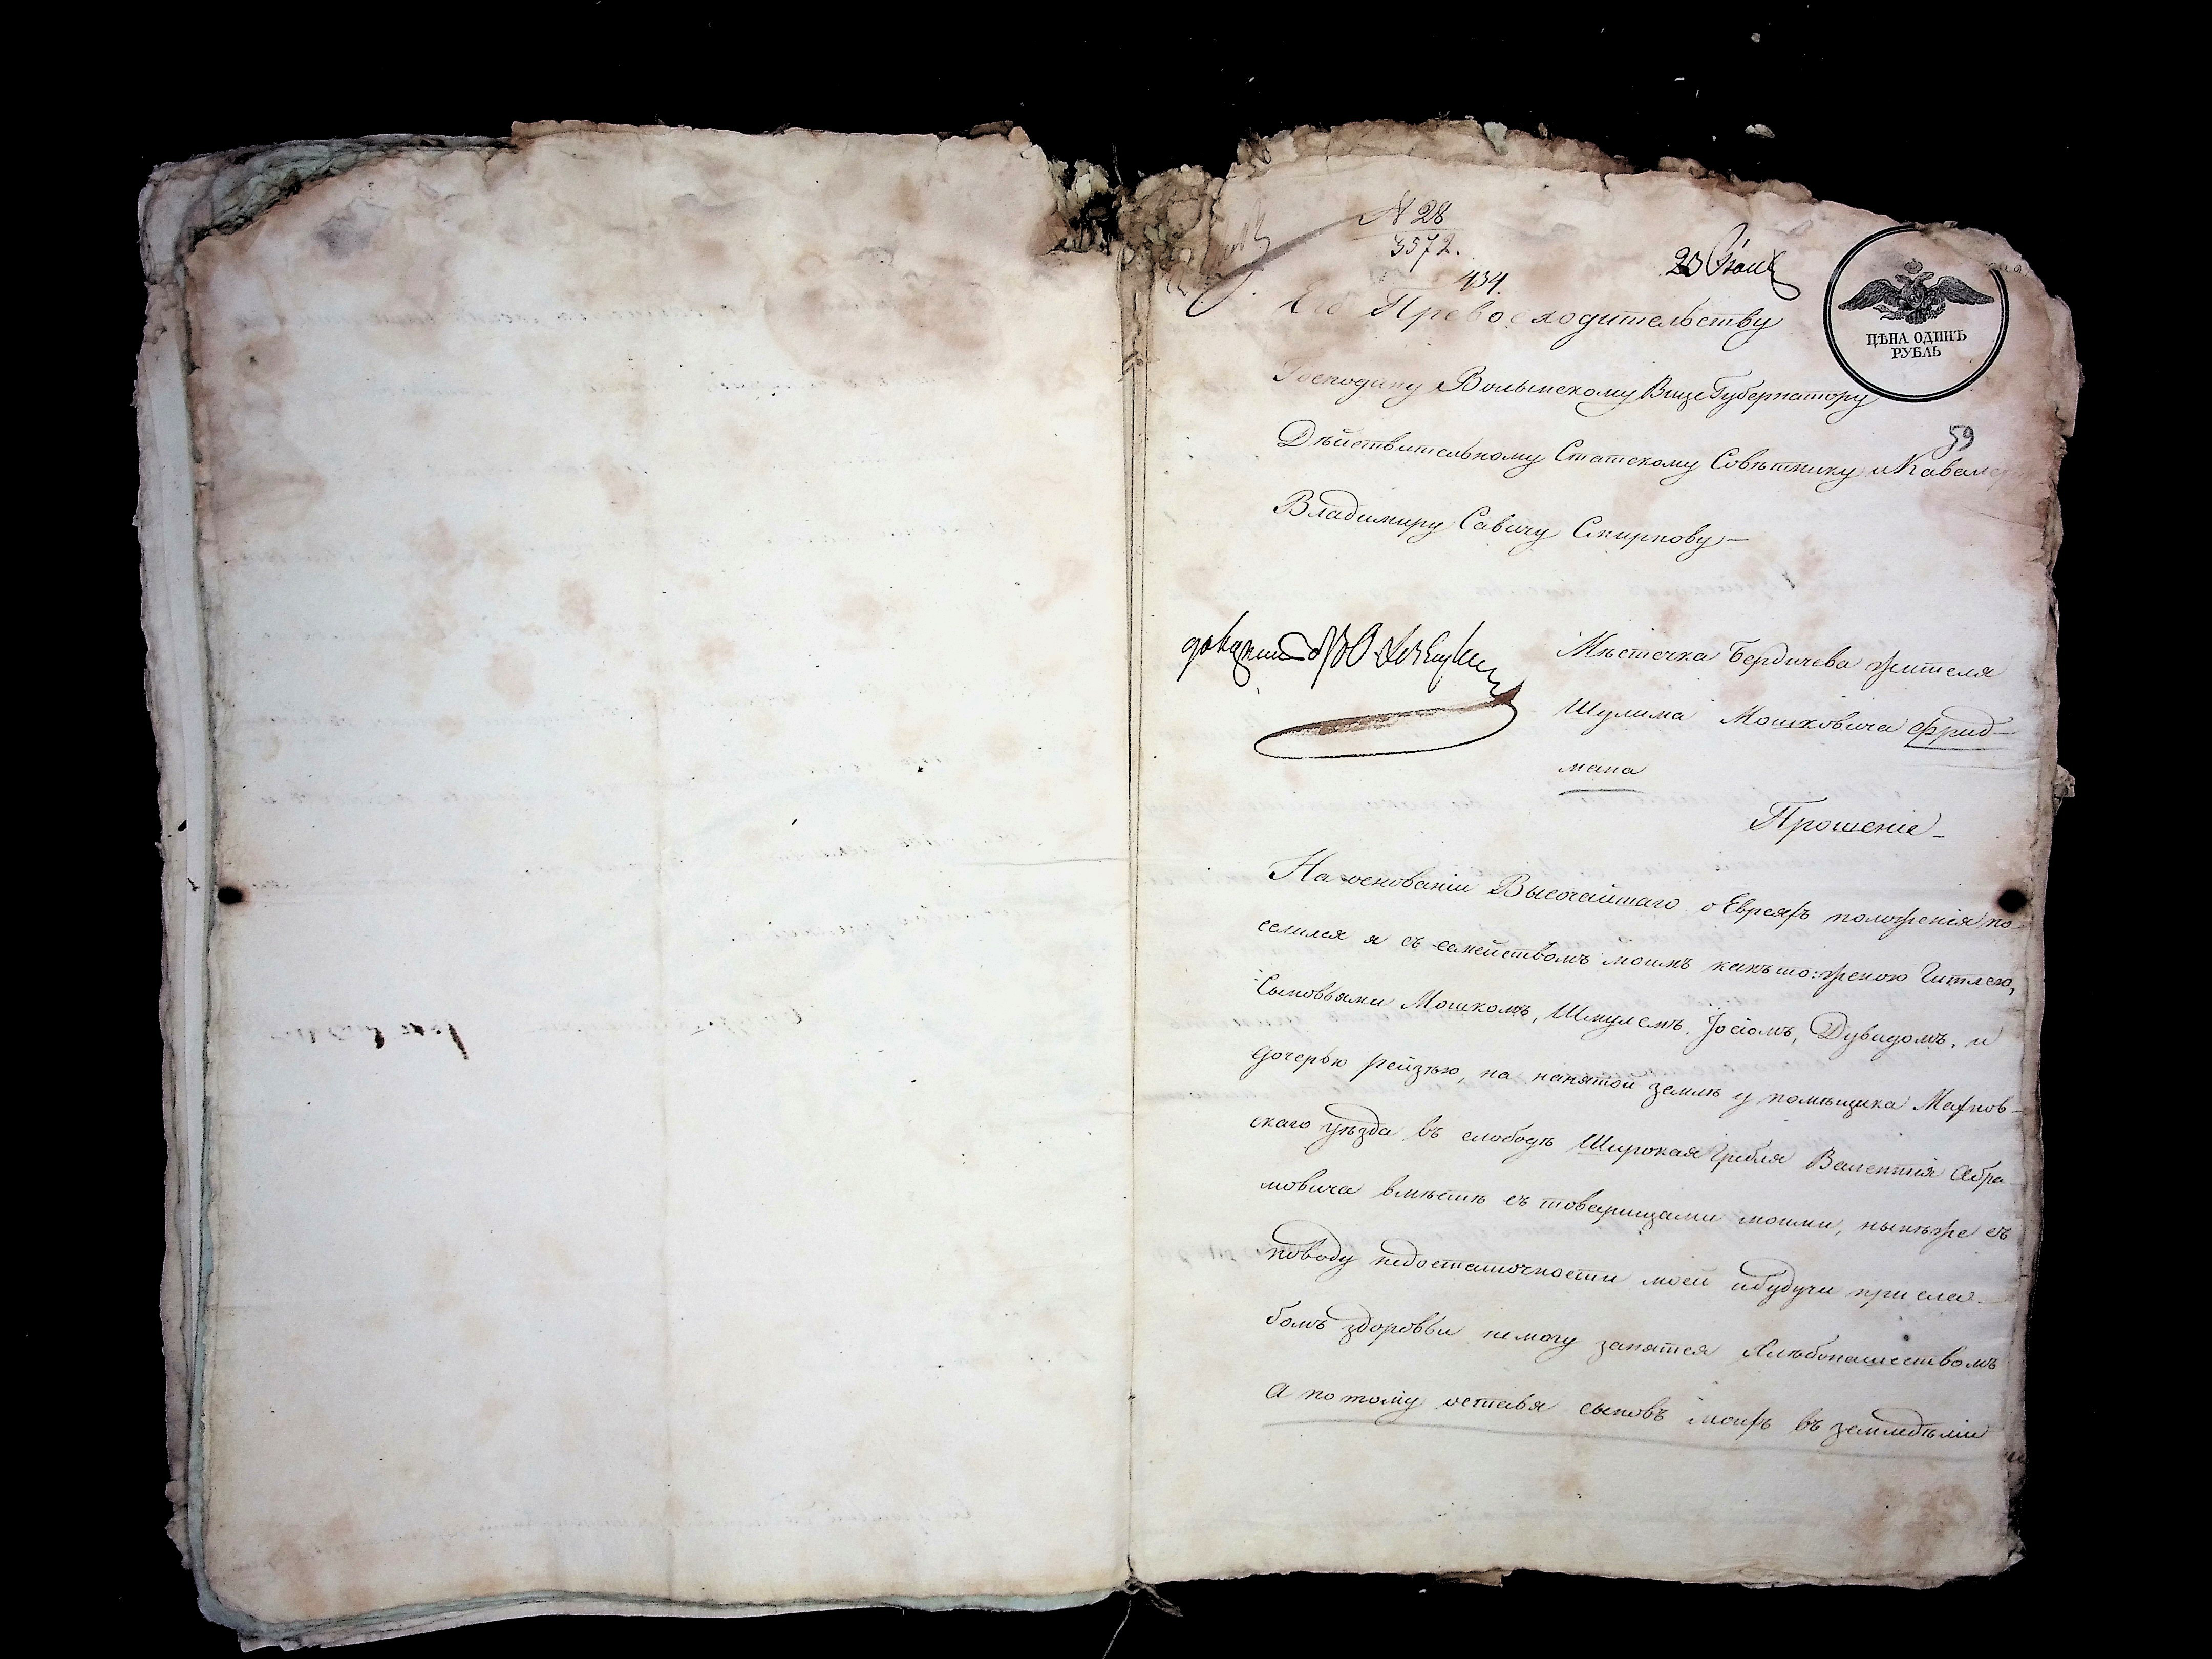 N 28
3572.
434.
23 Июня
ЦѢНА ОДИНЪ
РУБЛЬ
Его Превосходительству
Господину Волынскому Вице Губернатору
59
Дѣйствительному Статскому Совѣтнику и Кавалеру
Владимиру Савичу Смирнову
Мѣстечка Бердичева жителя
Шулима Мошковича Фрид-
мана
Прошеніе
На основаніи Высочайшаго о Евреяхъ положенія по-
селился я съ семействомъ моимъ какъ то: женою Гитлею,
Сыновьями Мошкомъ, Шмулемъ, Іосіомъ, Дувидомъ, и
дочерью Рейзею, на нанятой землѣ у помѣщика Махнов-
скаго уѣзда въ слободѣ Широкая Гребля Валентія Абра
мовича вмѣстѣ съ товарищами моими, нынѣ же съ
поводу недостаточности моей и будучи при сла-
бомъ здоровьи немогу занятся хлѣбопашествомъ
А потому оставя сыновъ моихъ въ земледѣліи